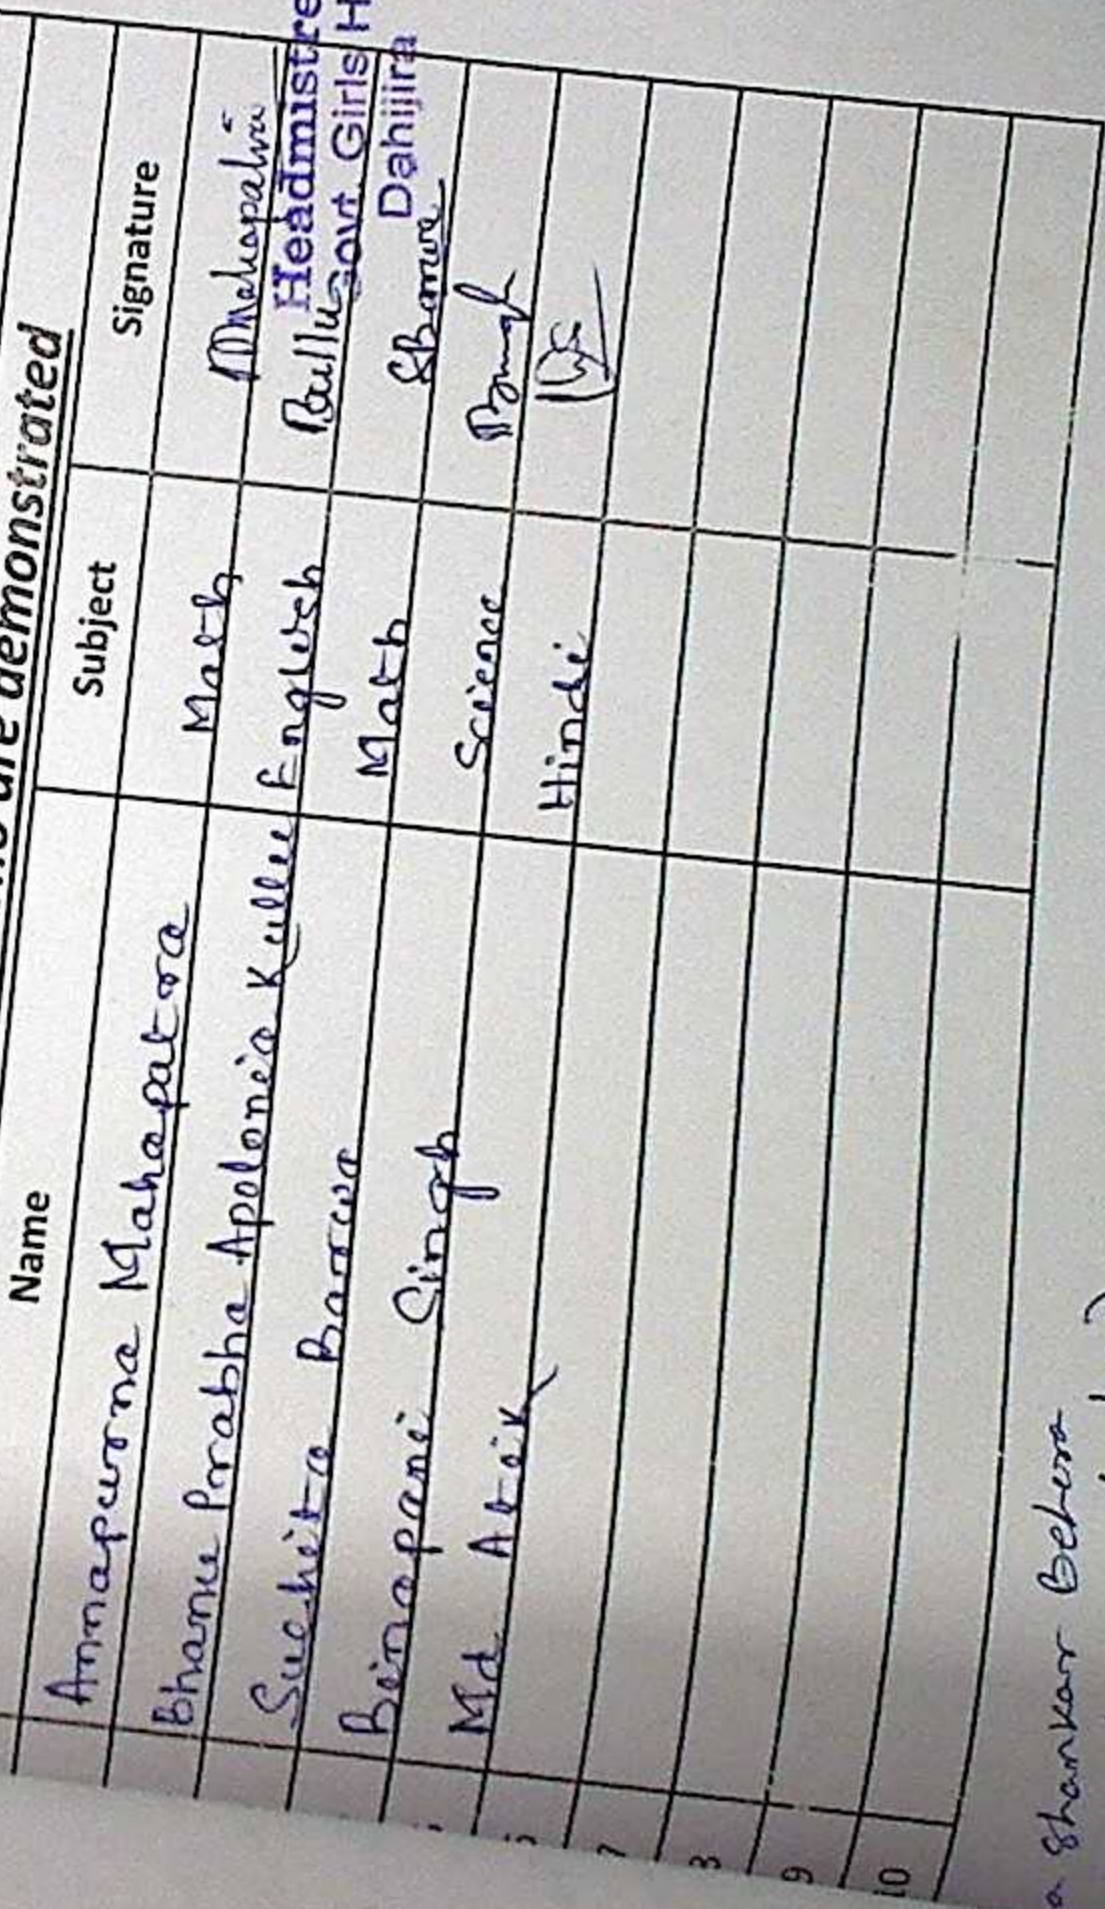 are demonstrated
Name Subject Signature
Annapurna Mahapatra Math Mahapatra
Headmistre
Bhanu Prabha Apolonia Kullu English Govt. Girls H
Dahijira
Suchita Barwa Math SBarwa
Binapani Singh Science BSingh
Md Atik Hindi
7
8
9
10
Shankar Behera